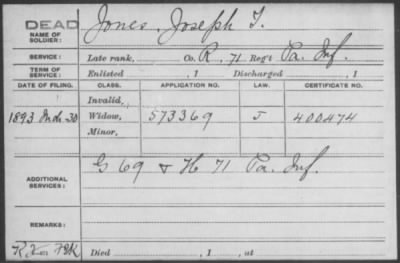 DEAD
NAME OF SOLDIER: Jones, Joseph T.
SERVICE: Late rank, Co. R, 71 Reg't Pa. Inf.
TERM OF SERVICE: Enlisted , 1 Discharged , 1
DATE OF FILING. CLASS. APPLICATION NO. LAW. CERTIFICATE NO.
Invalid,
1893 Mch. 30 Widow, 573369 J 400474
Minor,
G 69 & H 71 Pa. Inf.
ADDITIONAL SERVICES:
REMARKS:
Died , 1 , at